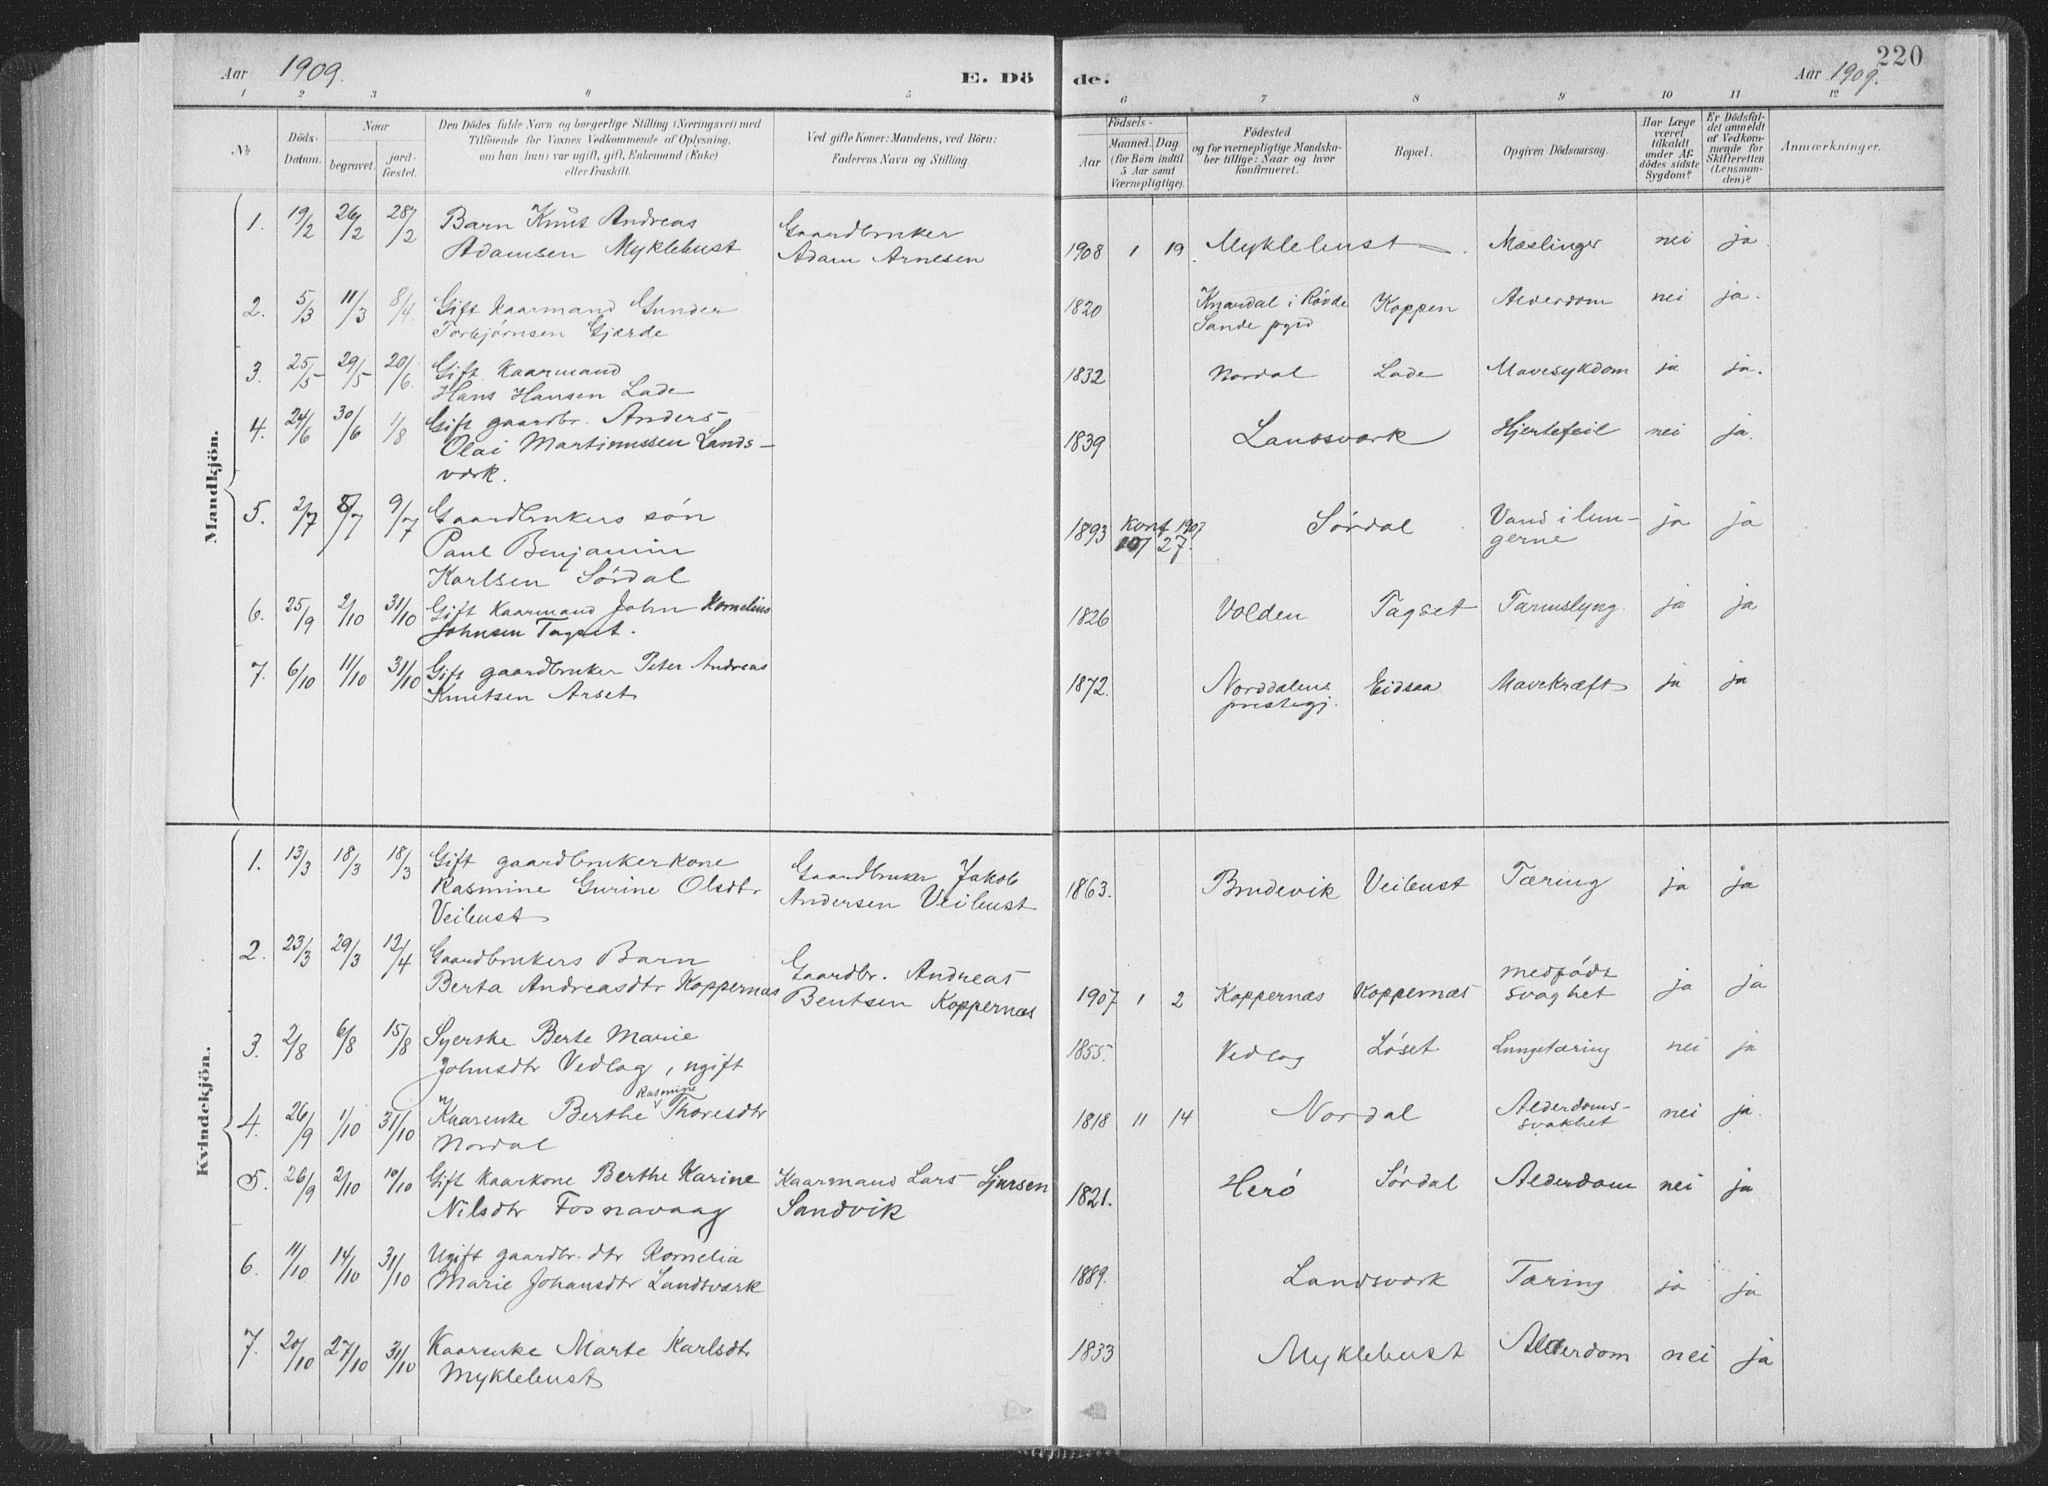 220
Aar 1909. E. Dö de. Aar 1909.
1 2 3 4 5 6 7 8 9 10 11 12
No Döds-Datum. Naar begravet. jordfæstet. Den Dödes fulde Navn og borgerlige Stilling (Næringsvei) med Tilföiende for Voxnes Vedkommende af Oplysning, om han (hun) var ugift, gift, Enkemand (Enke) eller fraskilt. Ved gifte Koner: Mandens, ved Börn: Faderens Navn og Stilling. Födsels- Aar Maaned. Dag. (for Börn indtil 5 Aar samt Værnepligtige). Födested og for værnepligtige Mandskaber tillige: Naar og hvor konfirmeret. Bopæl. Opgiven Dödsaarsag. Har Læge været tilkaldt under Afdödes sidste Sygdom? Er Dödsfaldet anmeldt af Vedkommende for Skifteretten (Lensmanden)? Anmærkninger.
Mandkjön.
1. 19/2 26/2 28/2 Barn Knut Andreas Gaardbruker
Adamsen Myklebust Adam Arnesen 1908 1 19 Myklebust Mæslinger nei ja
2. 5/3 11/3 8/4 Gift Kaarmand Gunder 1820 Knardal i Røvde Koppen Alderdom nei ja.
Torbjørnsen Gjærde Sande pgid
3. 25/5 29/5 20/6 Gift Kaarmand 1832 Nordal Lade Mavesykdom ja ja.
Hans Hansen Lade
4. 24/6 30/6 1/8 Gift gaardbr. Anders 1839 Landsværk Hjertefeil nei ja.
Olai Martinussen Lands-
værk.
5. 2/7 8/7 9/7 Gaardbrukers søn 1893 Konf 1907 Sørdal Vand i lun- ja ja
Paul Benjamin 10/ 27. gerne
Karlsen Sørdal
6. 25/9 2/10 31/10 Gift Kaarmand John Kornelius 1826 Volden Tagset Tarmslyng. ja ja
Johnsen Tagset.
7. 6/10 11/10 31/10 Gift gaardbruker Peter Andreas 1872. Norddalens Eidsaa Mavekræft ja ja
Knutsen Arset prestegj.
Kvindekjön.
1. 13/3 18/3 18/3 Gift gaardbrukerkone Gaardbruker Jakob 1863. Brudevik Veibust Tæring ja ja
Rasmine Gurine Olsdtr Andersen Veibust
Veibust
2. 23/3 29/3 12/4 Gaardbrukers Barn Gaardbr. Andreas medfødt
Berta Andreasdtr Koppernæs Bentsen Koppernæs 1907 1 2 Koppernæs Koppernæs svaghet ja ja
3. 2/8 6/8 15/8 Syerske Berte Marie 1855. Vedlog Løset Lungetæring nei ja
Johnsdtr Vedlog, ugift
4. 26/9 1/10 31/10 Kaarenke Berthe Rasmine Thoresdtr 1818 11 14 Nordal Alderdoms- nei ja.
Nordal svakhet
5. 26/9 2/10 10/10 Gift Kaarkone Berthe Karine Kaarmand Lars Sjursen 1821. Herø Sørdal Alderdom nei ja
Nilsdtr Fosnavaag Sandvik
6. 11/10 14/10 31/10 Ugift gaardbr. dtr Kornelia 1889. Landsværk Tæring ja ja
Marie Johansdtr Landsværk
7. 20/10 27/10 31/10 Kaarenke Marte Karlsdtr 1833 Myklebust Alderdom nei ja
Myklebust